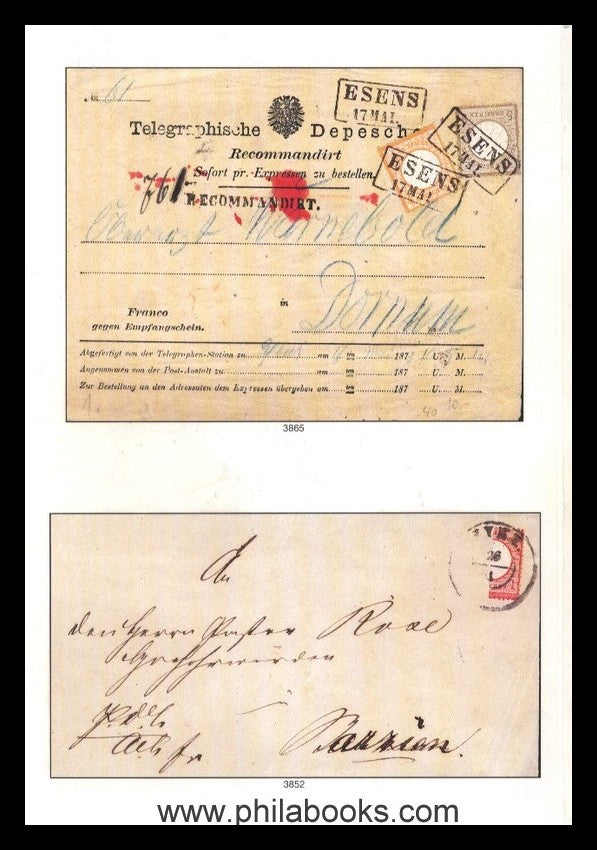 No. 61
ESENS
17 MAI.
Telegraphische Depesche
ESENS
17 MAI.
Recommandirt
ESENS
17 MAI
Sofort pr. Expressen zu bestellen.
761
RECOMMANDIRT.
Warnebold
Franco
gegen Empfangschein.
in
Dornum
Abgefertigt von der Telegraphen-Station zu Esens am 187 U. M.
Angenommen von der Post-Anstalt zu am 187 U. M.
Zur Bestellung an den Adressaten dem Expressen übergeben am 187 U. M.
3865
An
26
den Herrn Pastor Rose
Hochehrwürden
Barrien.
3852
www.philabooks.com